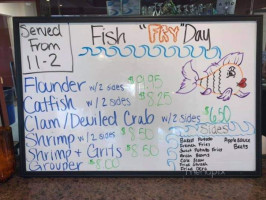 Served
From
11-2
Fish "FRY" Day
Flounder w/2 sides $9.95
Catfish w/2 sides $8.25
Clam/Deviled Crab w/2 sides $6.50
Shrimp w/2 sides $8.50
Shrimp + Grits $8.50
Grouper $8.00
Sides
Sweet Potato
French Fries
Sweet Potato Fries
Green Beans
Cole Slaw
Fried Okra
Applesauce
Beets